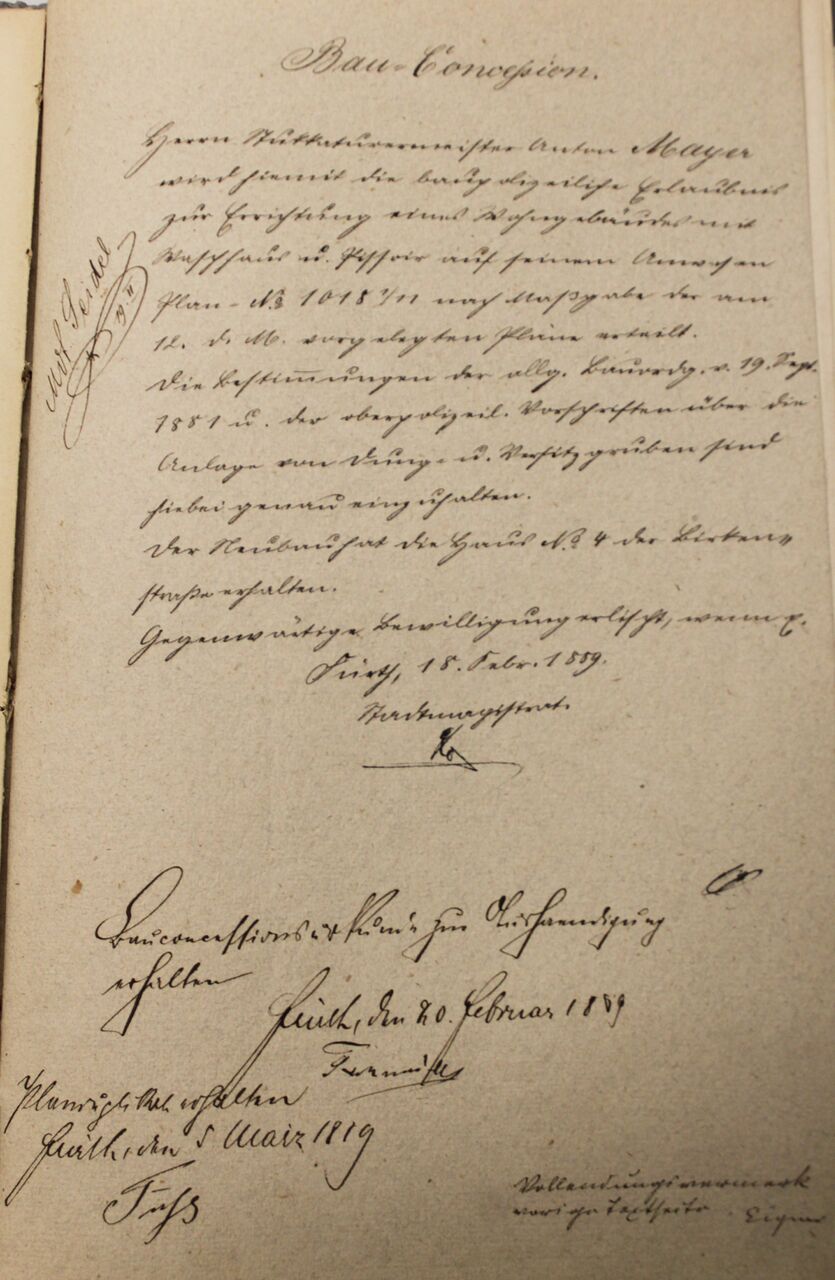 Bau-Concession.
Herrn Stukkaturermeister Anton Mayer
wird hiemit die baupolizeiliche Erlaubnis
zur Errichtung eines Wohngebäudes mit
Waschhaus u. Pissoir auf seinem Anwesen
Plan-No 1018 1/11 nach Maßgabe der am
12. d. M. vorgelegten Pläne erteilt.
Die Bestimmungen der allg. Bauordg. v. 19. Sept.
1881 u. der oberpolizeil. Vorschriften über die
Anlage von Dung- u. Versitzgruben sind
hiebei genau einzuhalten.
Der Neubau hat die Haus No 4 der Birken-
straße erhalten.
Gegenwärtige Bewilligung erlischt, wenn p.
Fürth, 18. Febr. 1889.
Stadtmagistrat.
Seidel
Bauconcessionsurkunde zur Aushaendigung
erhalten
Fürth, den 20. Februar 1889
Planduplikate erhalten
Fürth, den 5 März 1889
Fuchs
Vollendungsvermerk
vorige Textseite.